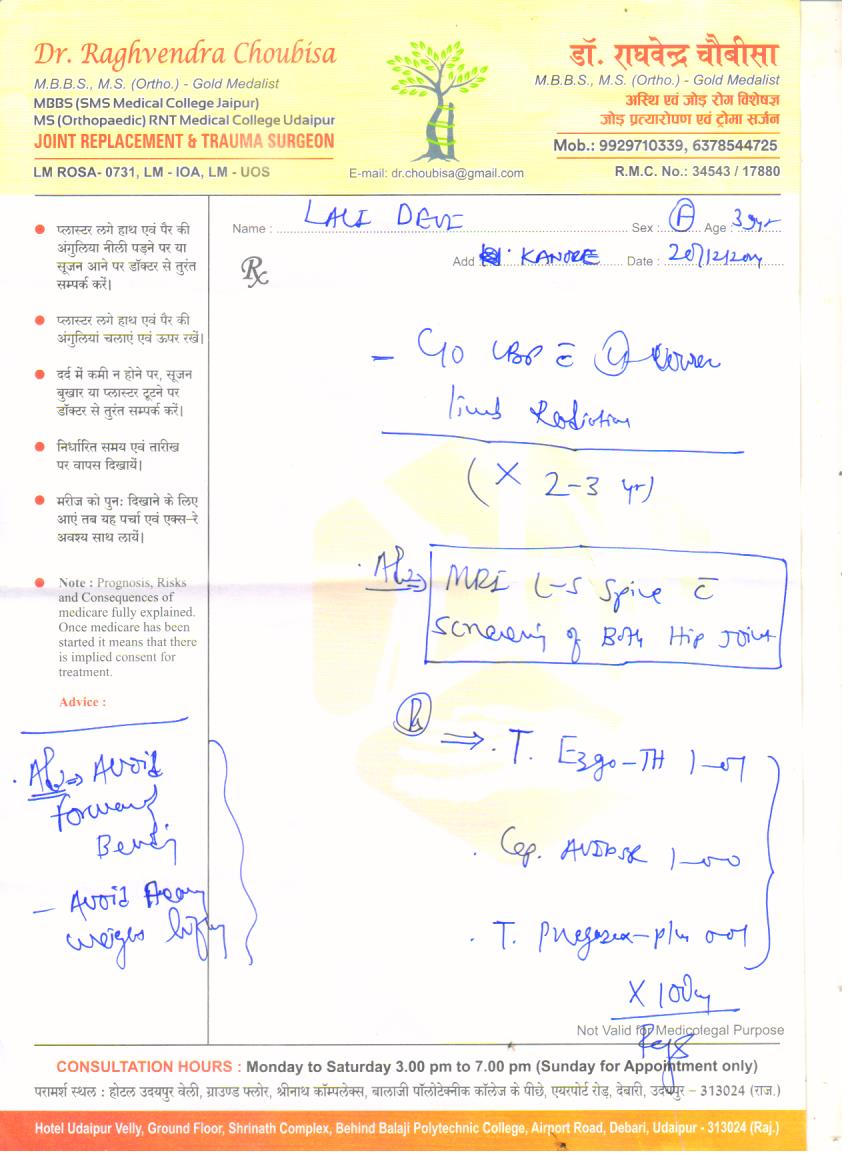 Dr. Raghvendra Choubisa
M.B.B.S., M.S. (Ortho.) - Gold Medalist
MBBS (SMS Medical College Jaipur)
MS (Orthopaedic) RNT Medical College Udaipur
JOINT REPLACEMENT & TRAUMA SURGEON
LM ROSA- 0731, LM - IOA, LM - UOS
E-mail: dr.choubisa@gmail.com
डॉ. राघवेन्द्र चौबीसा
M.B.B.S., M.S. (Ortho.) - Gold Medalist
अस्थि एवं जोड़ रोग विशेषज्ञ
जोड़ प्रत्यारोपण एवं ट्रोमा सर्जन
Mob.: 9929710339, 6378544725
R.M.C. No.: 34543 / 17880
Name : LALI DEVI Sex : F Age :
Add KANORE Date :
प्लास्टर लगे हाथ एवं पैर की
अंगुलिया नीली पड़ने पर या
सूजन आने पर डॉक्टर से तुरंत
सम्पर्क करें।
प्लास्टर लगे हाथ एवं पैर की
अंगुलियां चलाएं एवं ऊपर रखें।
दर्द में कमी न होने पर, सूजन
बुखार या प्लास्टर टूटने पर
डॉक्टर से तुरंत सम्पर्क करें।
निर्धारित समय एवं तारीख
पर वापस दिखायें।
मरीज को पुनः दिखाने के लिए
आएं तब यह पर्चा एवं एक्स-रे
अवश्य साथ लायें।
Note : Prognosis, Risks
and Consequences of
medicare fully explained.
Once medicare has been
started it means that there
is implied consent for
treatment.
Advice :
Adv => Avoid
forward
Bending
- Avoid Heavy
weight lifting
Rx
- C/o LBP c̄ lower
limb Radiation
(X 2-3 yr)
Adv => MRI L-S Spine c̄
Screening of Both Hip Joint
Rx => T. Ezgo-TH
Cap. 1-0-0
T. plus 0-0-1
X 10 day
Not Valid for Medicolegal Purpose
CONSULTATION HOURS : Monday to Saturday 3.00 pm to 7.00 pm (Sunday for Appointment only)
परामर्श स्थल : होटल उदयपुर वेली, ग्राउण्ड फ्लोर, श्रीनाथ कॉम्पलेक्स, बालाजी पॉलोटेक्नीक कॉलेज के पीछे, एयरपोर्ट रोड़, देबारी, उदयपुर – 313024 (राज.)
Hotel Udaipur Velly, Ground Floor, Shrinath Complex, Behind Balaji Polytechnic College, Airport Road, Debari, Udaipur - 313024 (Raj.)